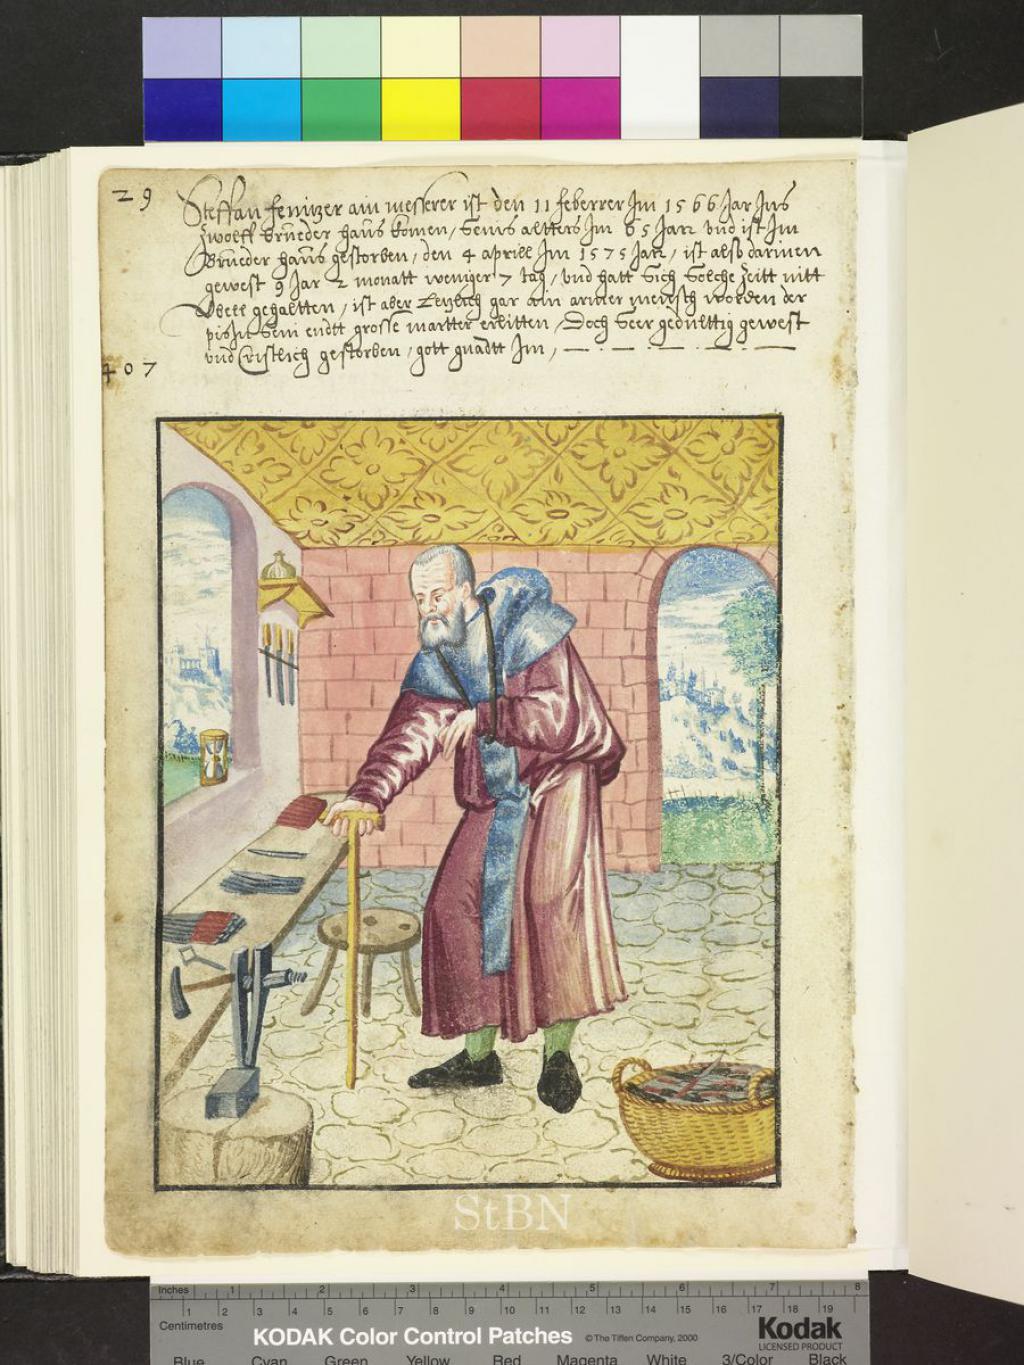 29
Steffan fenitzer ain messerer ist den 11 feberrer Im 1566 Jar Ins
zwolff brueder haus komen, Seins altters Im 65 Jarr und ist Im
Brueder haus gestorben, den 4 aprill Im 1575 Jarr, ist also darinen
gewest 9 Jar 2 monatt weniger 7 tag, und hatt Sich Solche Zeitt nitt
Ubell gehaltten, ist aber Letzlich gar ain armer mensch worden der
Seim endtt grosse martter erlitten, Doch Seer gedulttig gewest
und Cristlich gestorben, gott gnadtt Im,
407
StBN
Inches 1 2 3 4 5 6 7 8
1 2 3 4 5 6 7 8 9 10 11 12 13 14 15 16 17 18 19
Centimetres
KODAK Color Control Patches © The Tiffen Company, 2000
Kodak
LICENSED PRODUCT
Blue Cyan Green Yellow Red Magenta White 3/Color Black